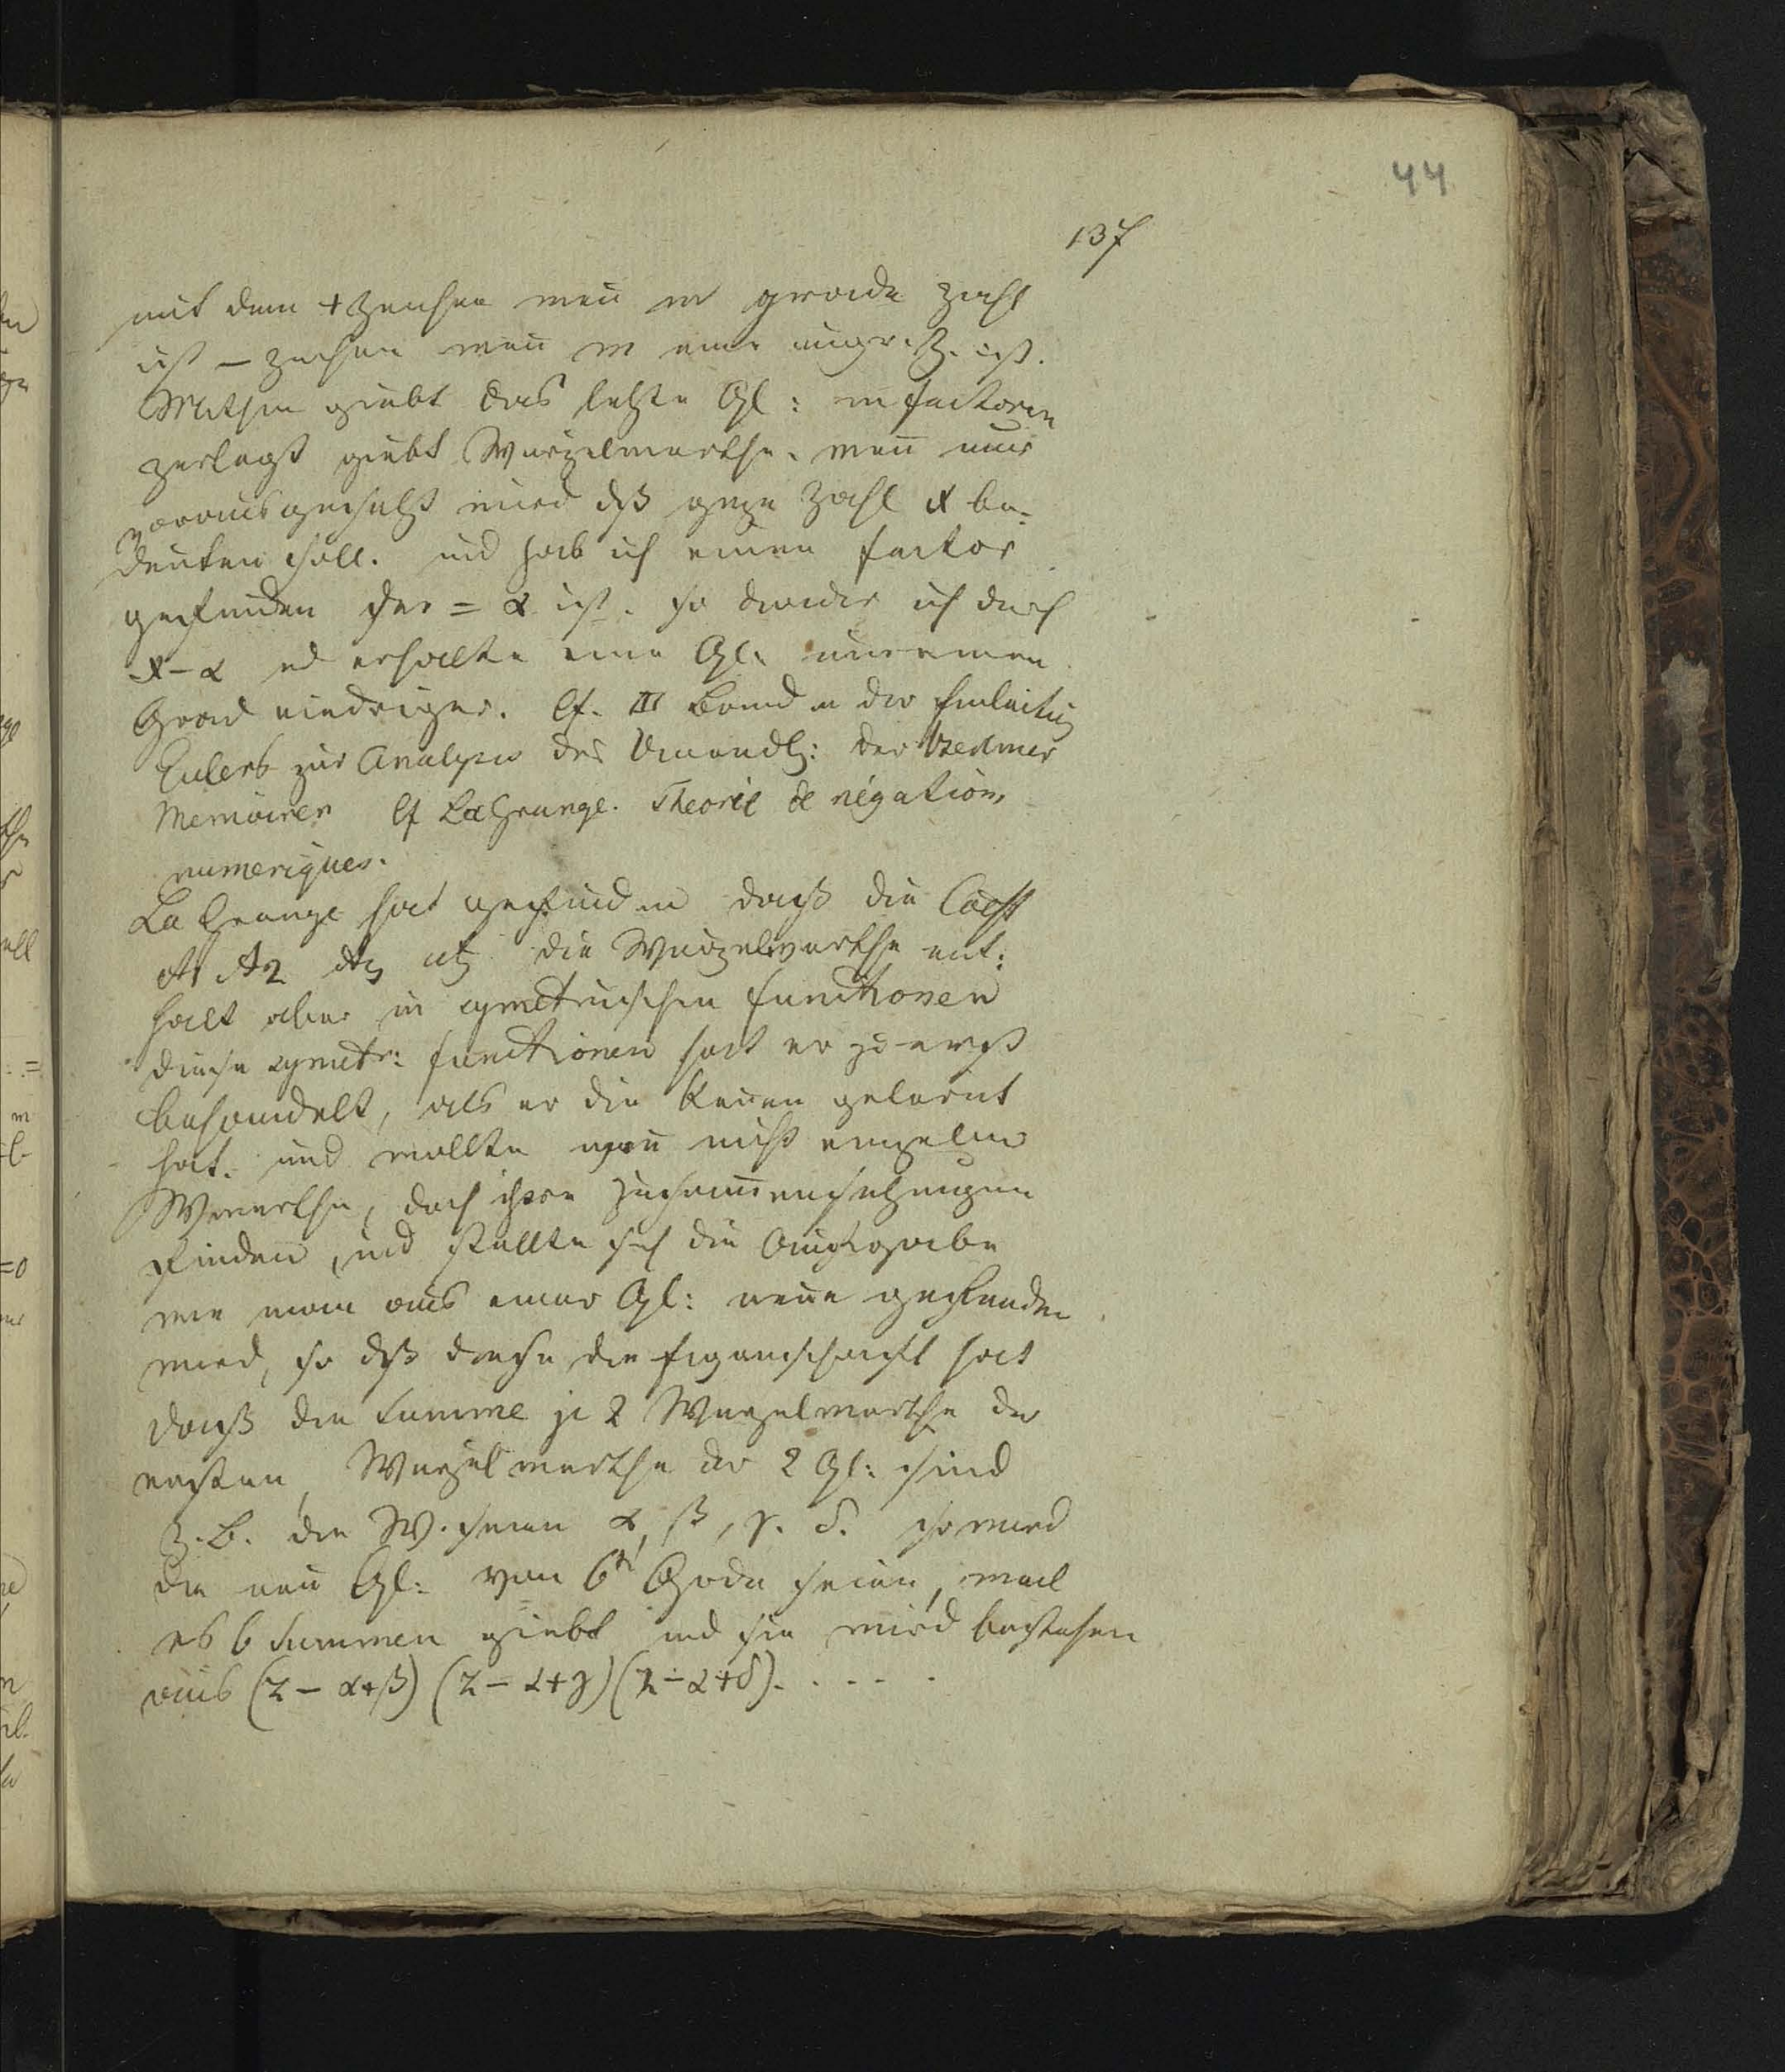 44
137
mit dem + Zeichen wen̄ m grade Zahl
ist – Zeichen wen̄ m eine ungr. Z. ist.
Mithin giebt das letzte Gl: in factoren
zerlegt giebt Wurzelwerthe. wen̄ nur
vorausgesetzt wird dß gnze Zahl x be-
deuten soll. und hab ich einen factor
gefunden der = α ist. so dividir ich durch
x – α ud erhalte eine Gl: um einen
Grad niedriger. Cf. III Band der Einleitug
Eulers zur Analysis des Unendl: der Berliner
Memoiren Cf La Grange. Theorie de
numeriques.
La Grange hat gefunden daß die Coeff
A1 A2 A3 etz die Wurzelwerthe ent:
halt aber in symetrischen functionen
diese symetr: functionen hat er zu erst
behandelt, als er die ken̄en gelernt
hat. und wollte nicht einzelne
Werthe, doch ihre Zusam̄ensetzungen
finden, und stellte sich die Aufgabe
wie man aus einer Gl: neue gefunden
wird, so dß diese die Eigenschaft hat
daß die Summe je 2 Wurzelwerthe der
ersten, Wurzelwerthe der 2 Gl: sind
z. B. die W. seien α, β, γ. δ. so wird
die neue Gl: vom 6t Grade sein, weil
es 6 Summen giebt und sie wird bestehen
aus (z – α+β) (z – α+γ) (z – α+δ). . . . . .